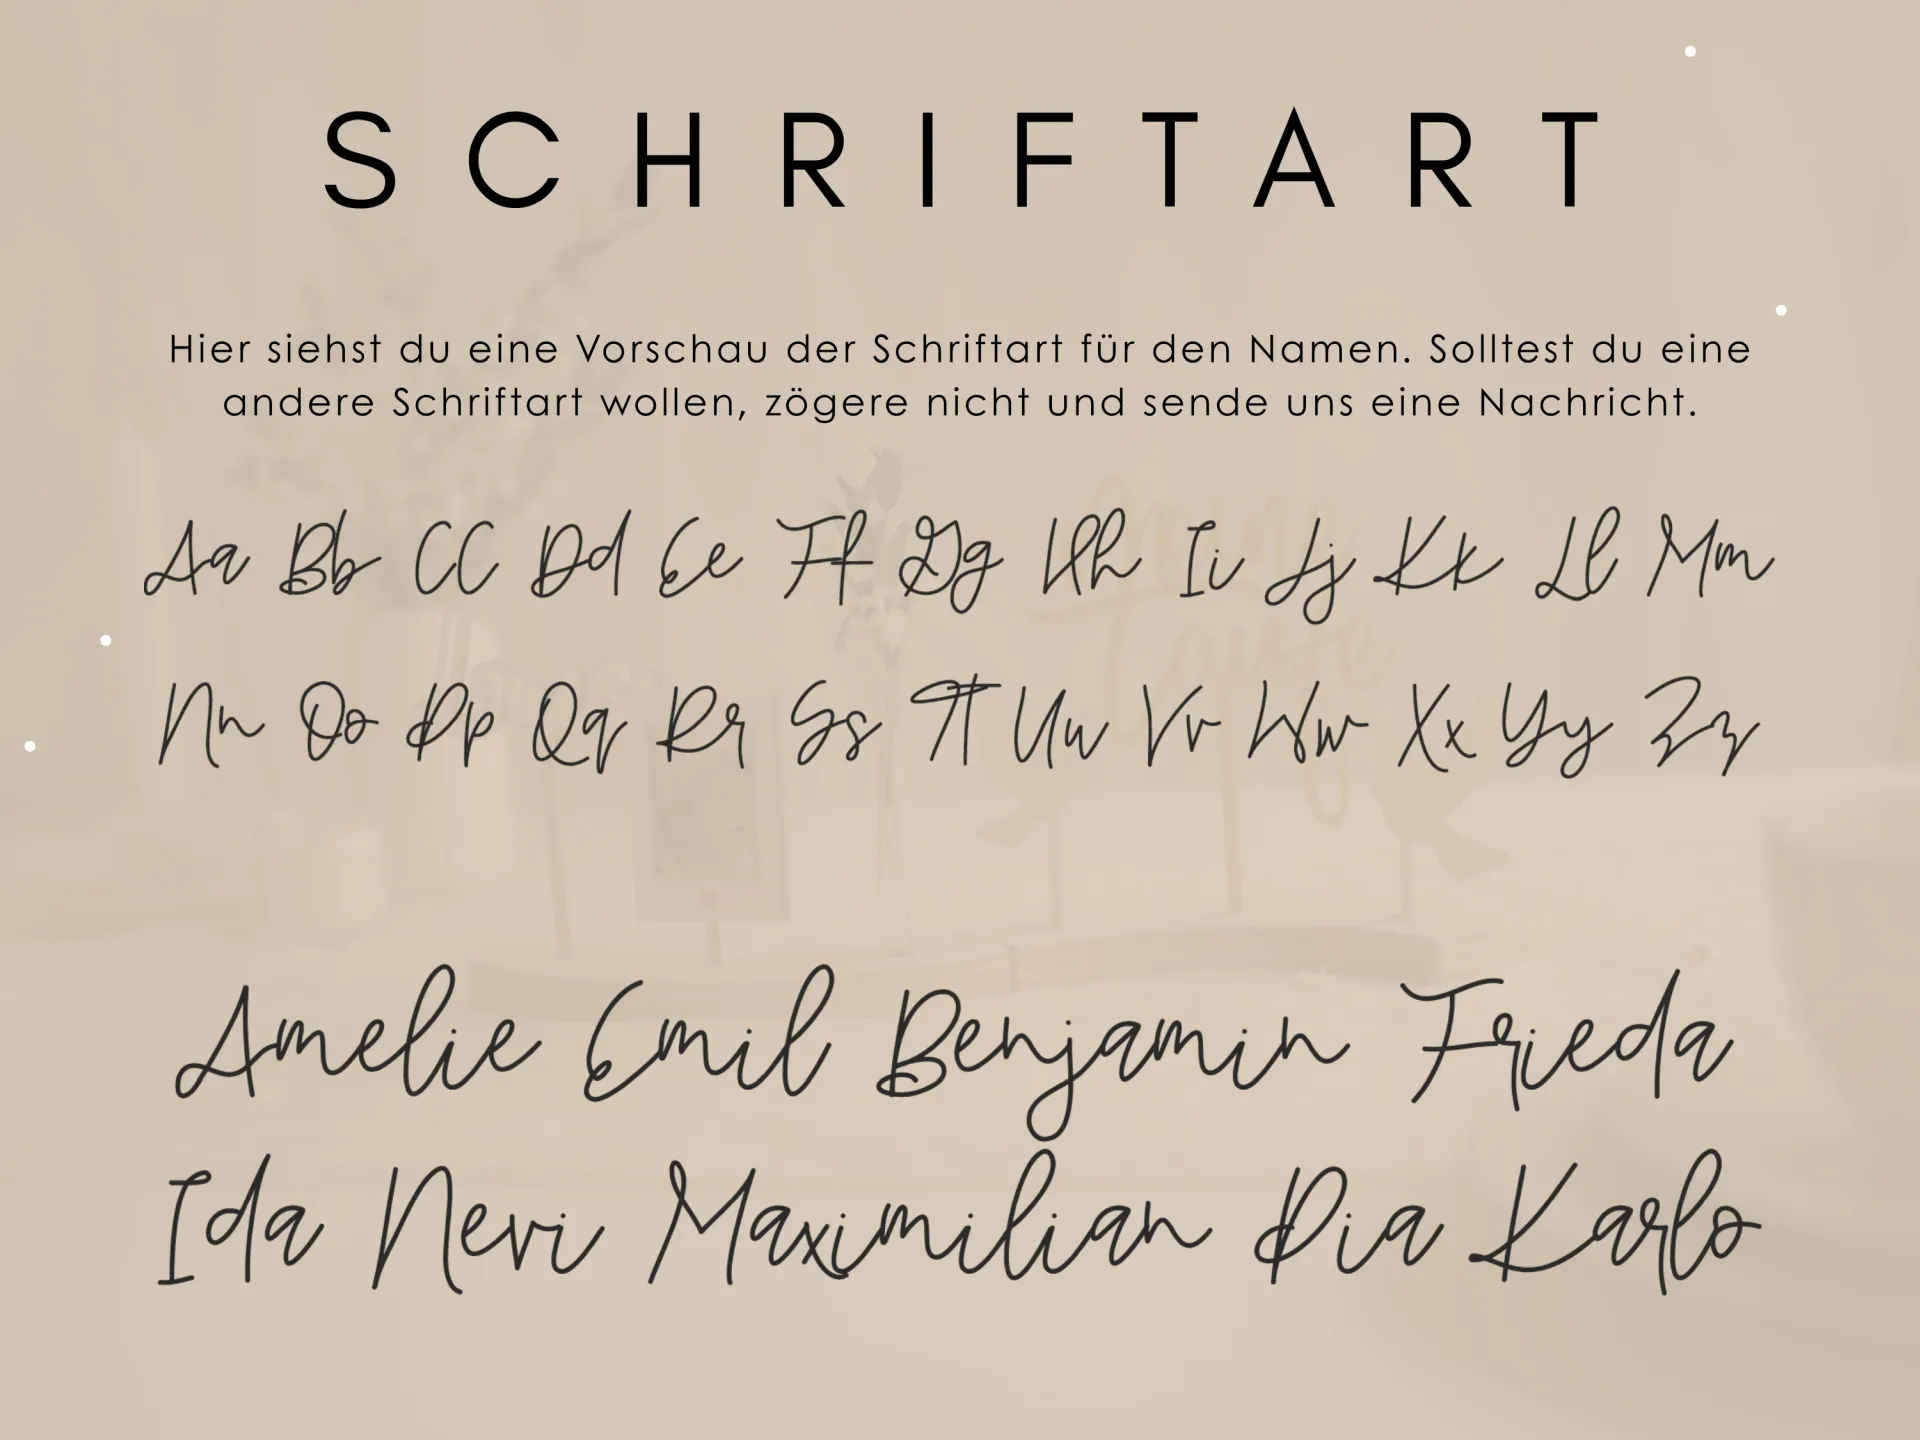 SCHRIFTART
Hier siehst du eine Vorschau der Schriftart für den Namen. Solltest du eine
andere Schriftart wollen, zögere nicht und sende uns eine Nachricht.
Aa Bb CC Dd Ee Ff Gg Hh Ii Jj Kk Ll Mm
Nn Oo Pp Qq Rr Ss Tt Uu Vv Ww Xx Yy Zz
Amelie Emil Benjamin Frieda
Ida Nevi Maximilian Pia Karlo